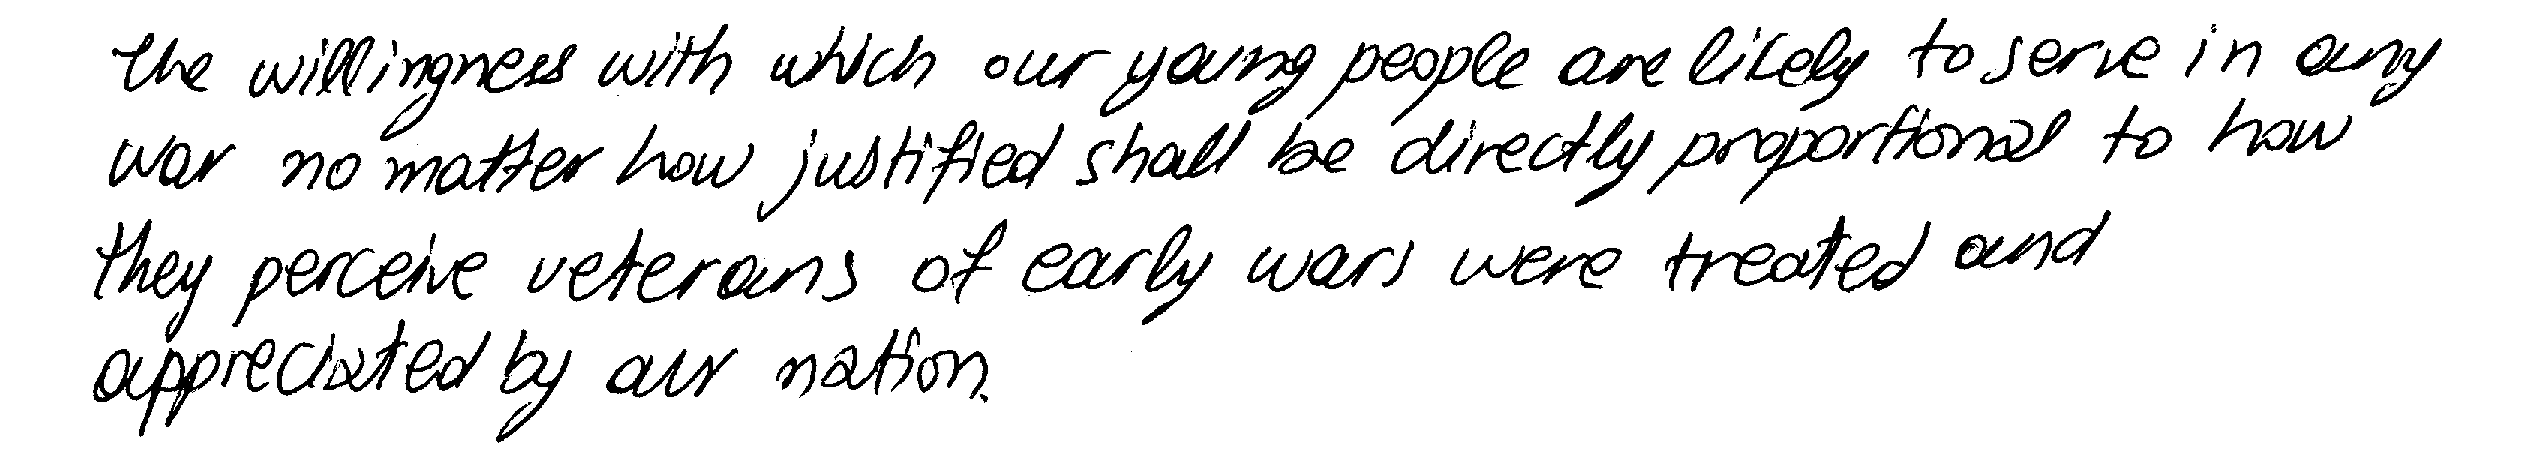 The willingness with which our young people are likely to serve in any
war no matter how justified shall be directly proportional to how
they perceive veterans of early wars were treated and
appreciated by our nation.